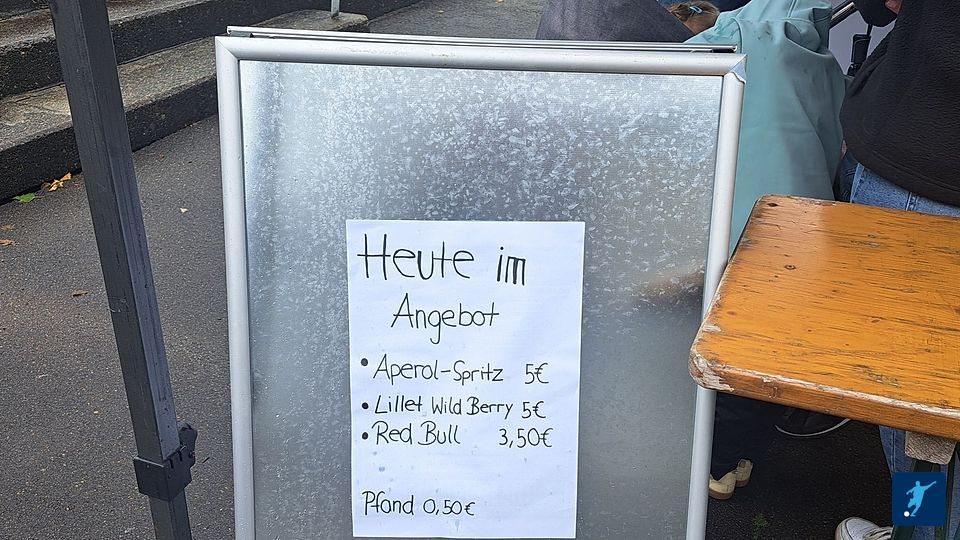 Heute im
Angebot
• Aperol-Spritz 5€
• Lillet Wild Berry 5€
• Red Bull 3,50€
Pfand 0,50€